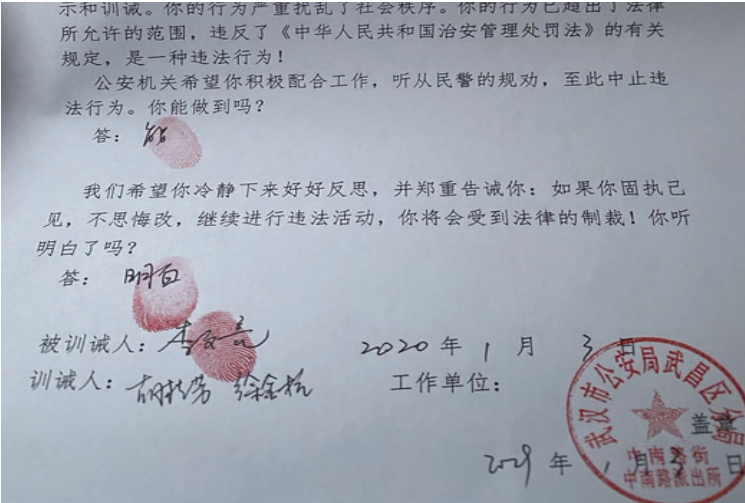 示和训诫。你的行为严重扰乱了社会秩序。你的行为已超出了法律
所允许的范围，违反了《中华人民共和国治安管理处罚法》的有关
规定，是一种违法行为！
公安机关希望你积极配合工作，听从民警的规劝，至此中止违
法行为。你能做到吗？
答：能
我们希望你冷静下来好好反思，并郑重告诫你：如果你固执己
见，不思悔改，继续进行违法活动，你将会受到法律的制裁！你听
明白了吗？
答：明白
被训诫人：李文亮 2020年1月3日
训诫人： 工作单位：
武汉市公安局武昌区分局
中南路街
中南路派出所
盖章
年1月3日